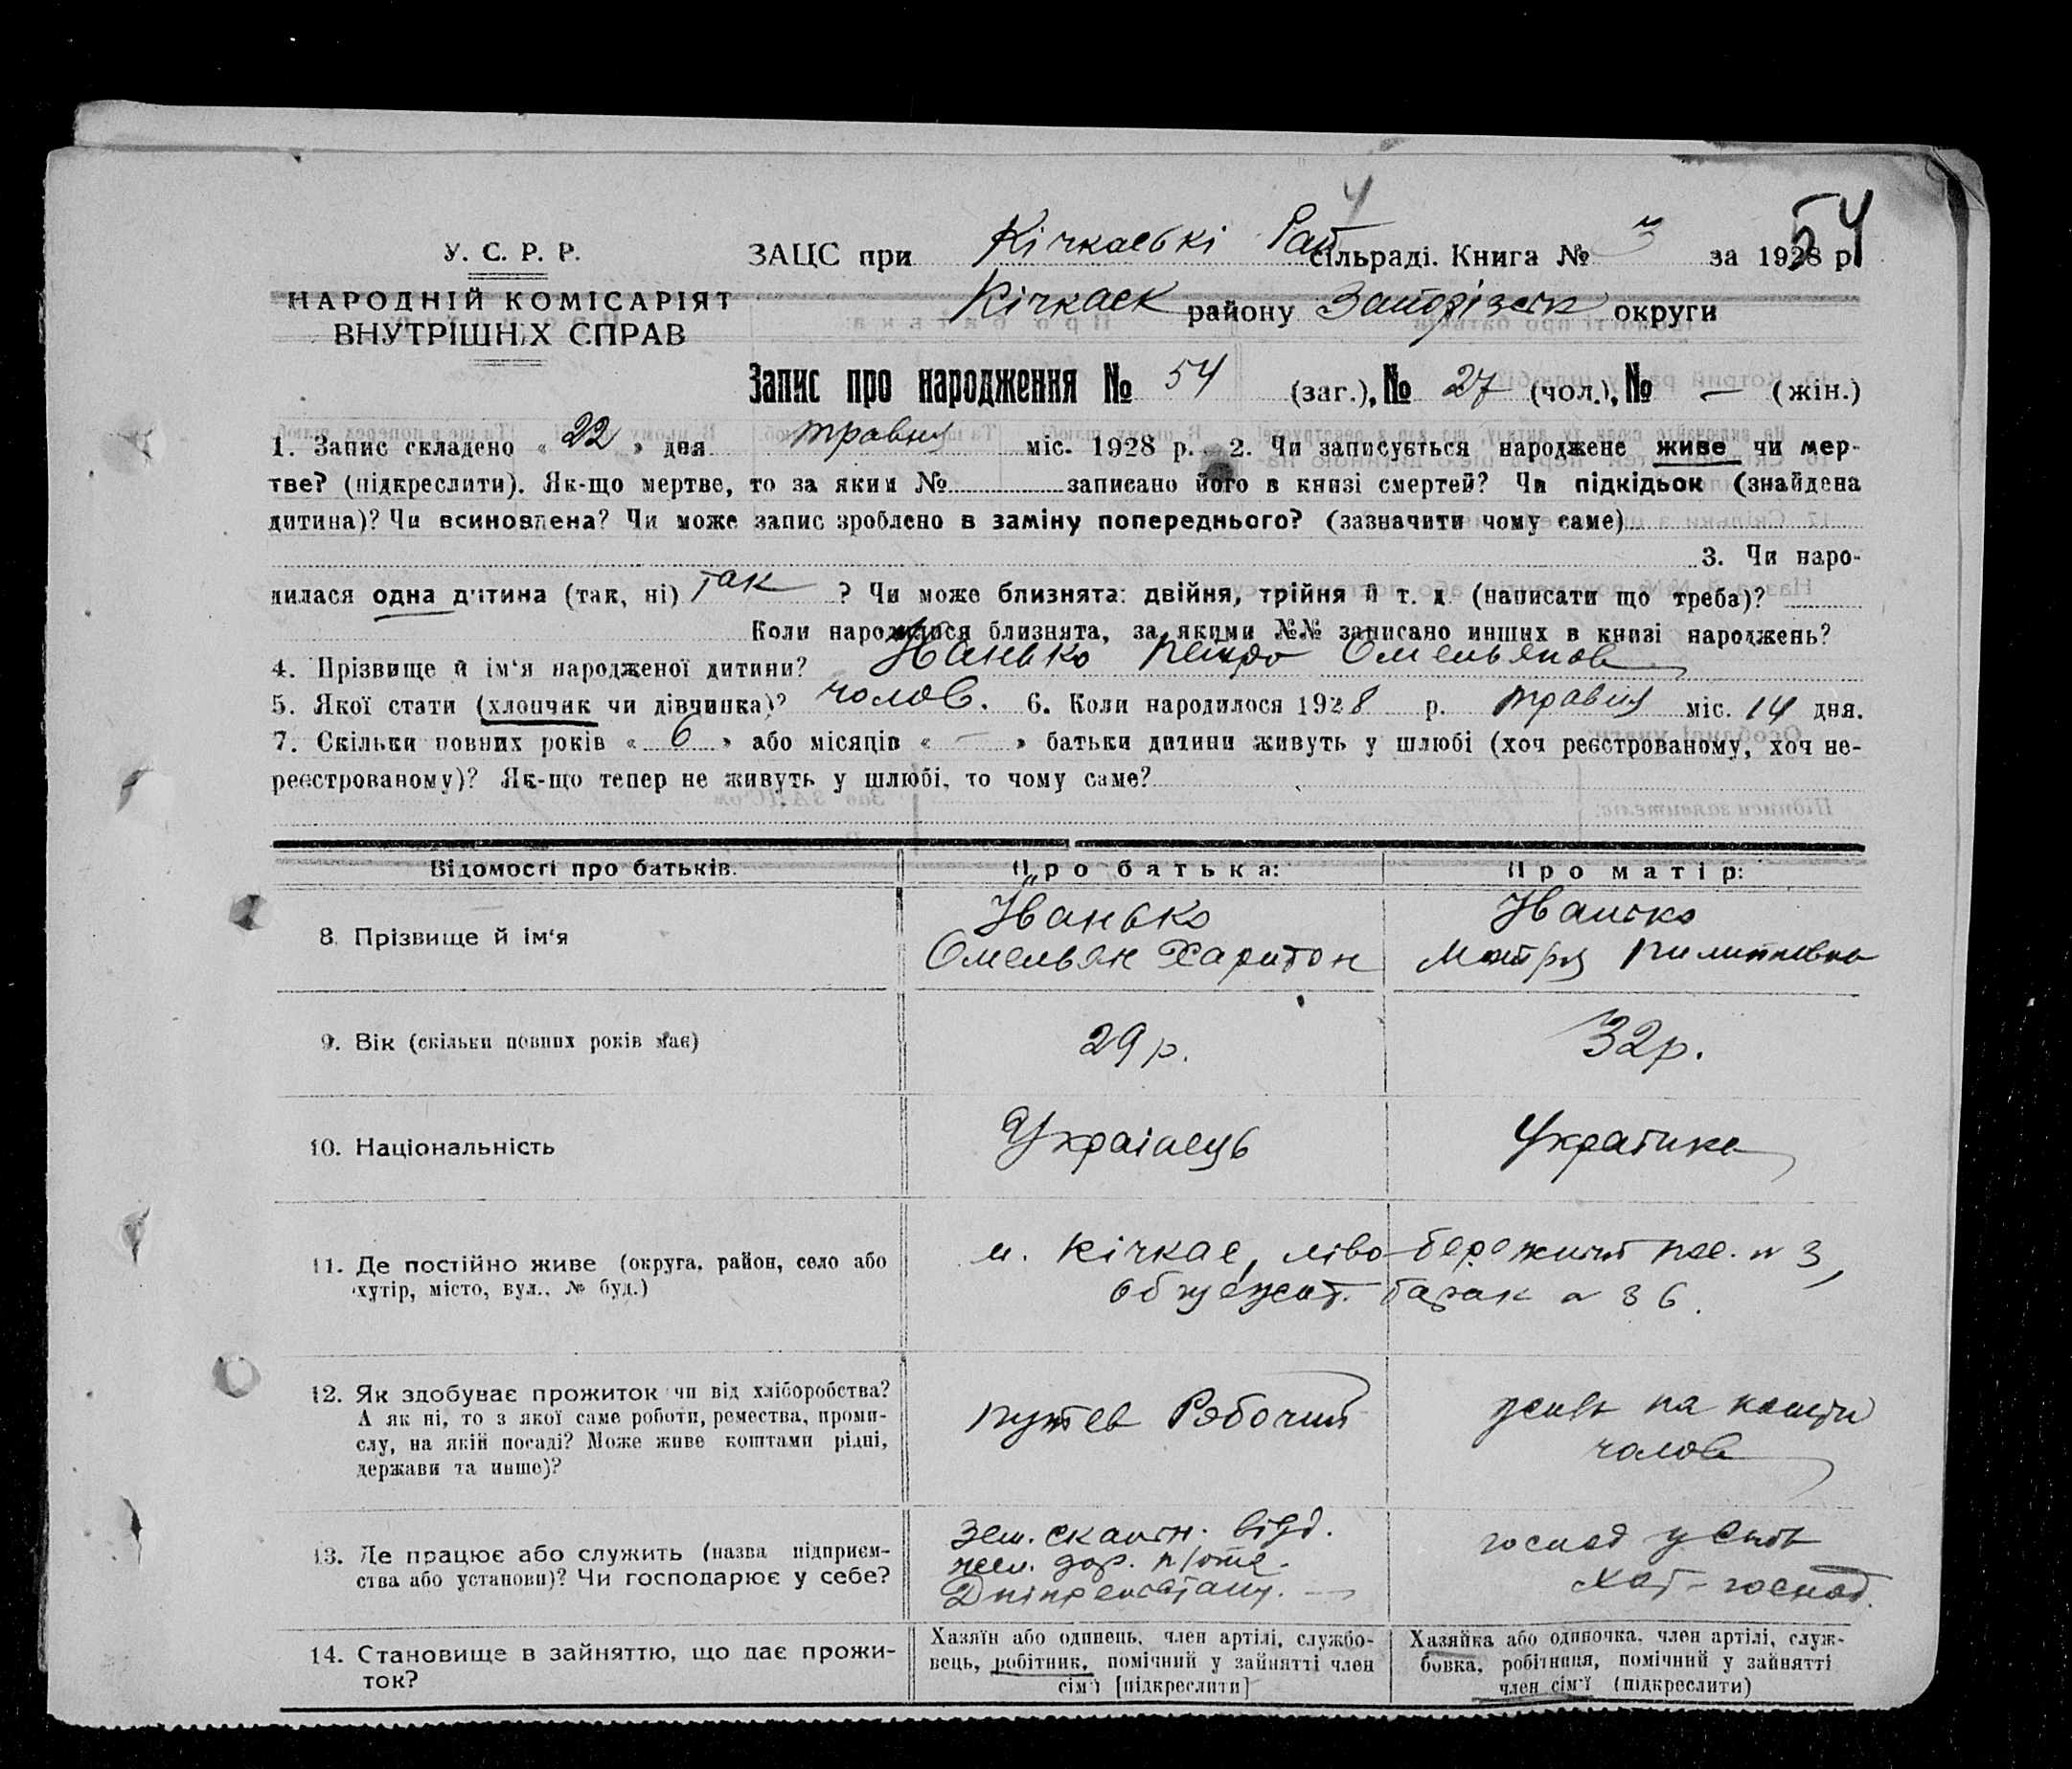 4
54
У. С. Р. Р.
НАРОДНІЙ КОМІСАРІЯТ
ВНУТРІШНІХ СПРАВ
ЗАЦС при Кічкаські Рай сільраді. Книга № 3 за 1928 р.
Кічкаск району Запорізськ округи
Запис про народження № 54 (заг.), № 27 (чол.), № — (жін.)
1. Запис складено « 22 » дня травня міс. 1928 р. 2. Чи записується народжене живе чи мер-
тве? (підкреслити). Як-що мертве, то за яким № записано його в книзі смертей? Чи підкідьок (знайдена
дитина)? Чи всиновлена? Чи може запис зроблено в заміну попереднього? (зазначити чому саме)
3. Чи наро-
дилася одна дитина (так, ні) так ? Чи може близнята: двійня, трійня й т. д. (написати що треба)?
Коли народилися близнята, за якими №№ записано инших в книзі народжень?
4. Прізвище й ім'я народженої дитини? Іванько Петро Омельянов
5. Якої стати (хлопчик чи дівчинка)? чолов. 6. Коли народилося 1928 р. травня міс. 14 дня.
7. Скільки повних років « 6 » або місяців « — » батьки дитини живуть у шлюбі (хоч реєстрованому, хоч не-
реєстрованому)? Як-що тепер не живуть у шлюбі, то чому саме?
Відомості про батьків. Про батька: Про матір:
8. Прізвище й ім'я
Іванько
Омельян Харитон
Іванько
Мотря Пилипівна
9. Вік (скільки повних років має) 29 р. 32 р.
10. Національність Українець Українка
11. Де постійно живе (округа, район, село або
хутір, місто, вул., № буд.)
м. Кічкас, ліво-бережний пос. № 3,
барак № 36.
12. Як здобуває прожиток чи від хліборобства?
А як ні, то з якої саме роботи, ремества, проми-
слу, на якій посаді? Може живе коштами рідні,
держави та инше)?
путев Рабочий
на кошти
чолов
13. Де працює або служить (назва підприєм-
ства або установи)? Чи господарює у себе?
Зем. скашн. відд.
Дніпрельстану. —
господ у своїм
хат-господ.
14. Становище в зайняттю, що дає прожи-
ток?
Хазяїн або одинець, член артілі, службо-
вець, робітник, помічний у зайнятті член
сім'ї [підкреслити]
Хазяйка або одиночка, член артілі, служ-
бовка, робітниця, помічний у зайнятті
член сім'ї (підкреслити)